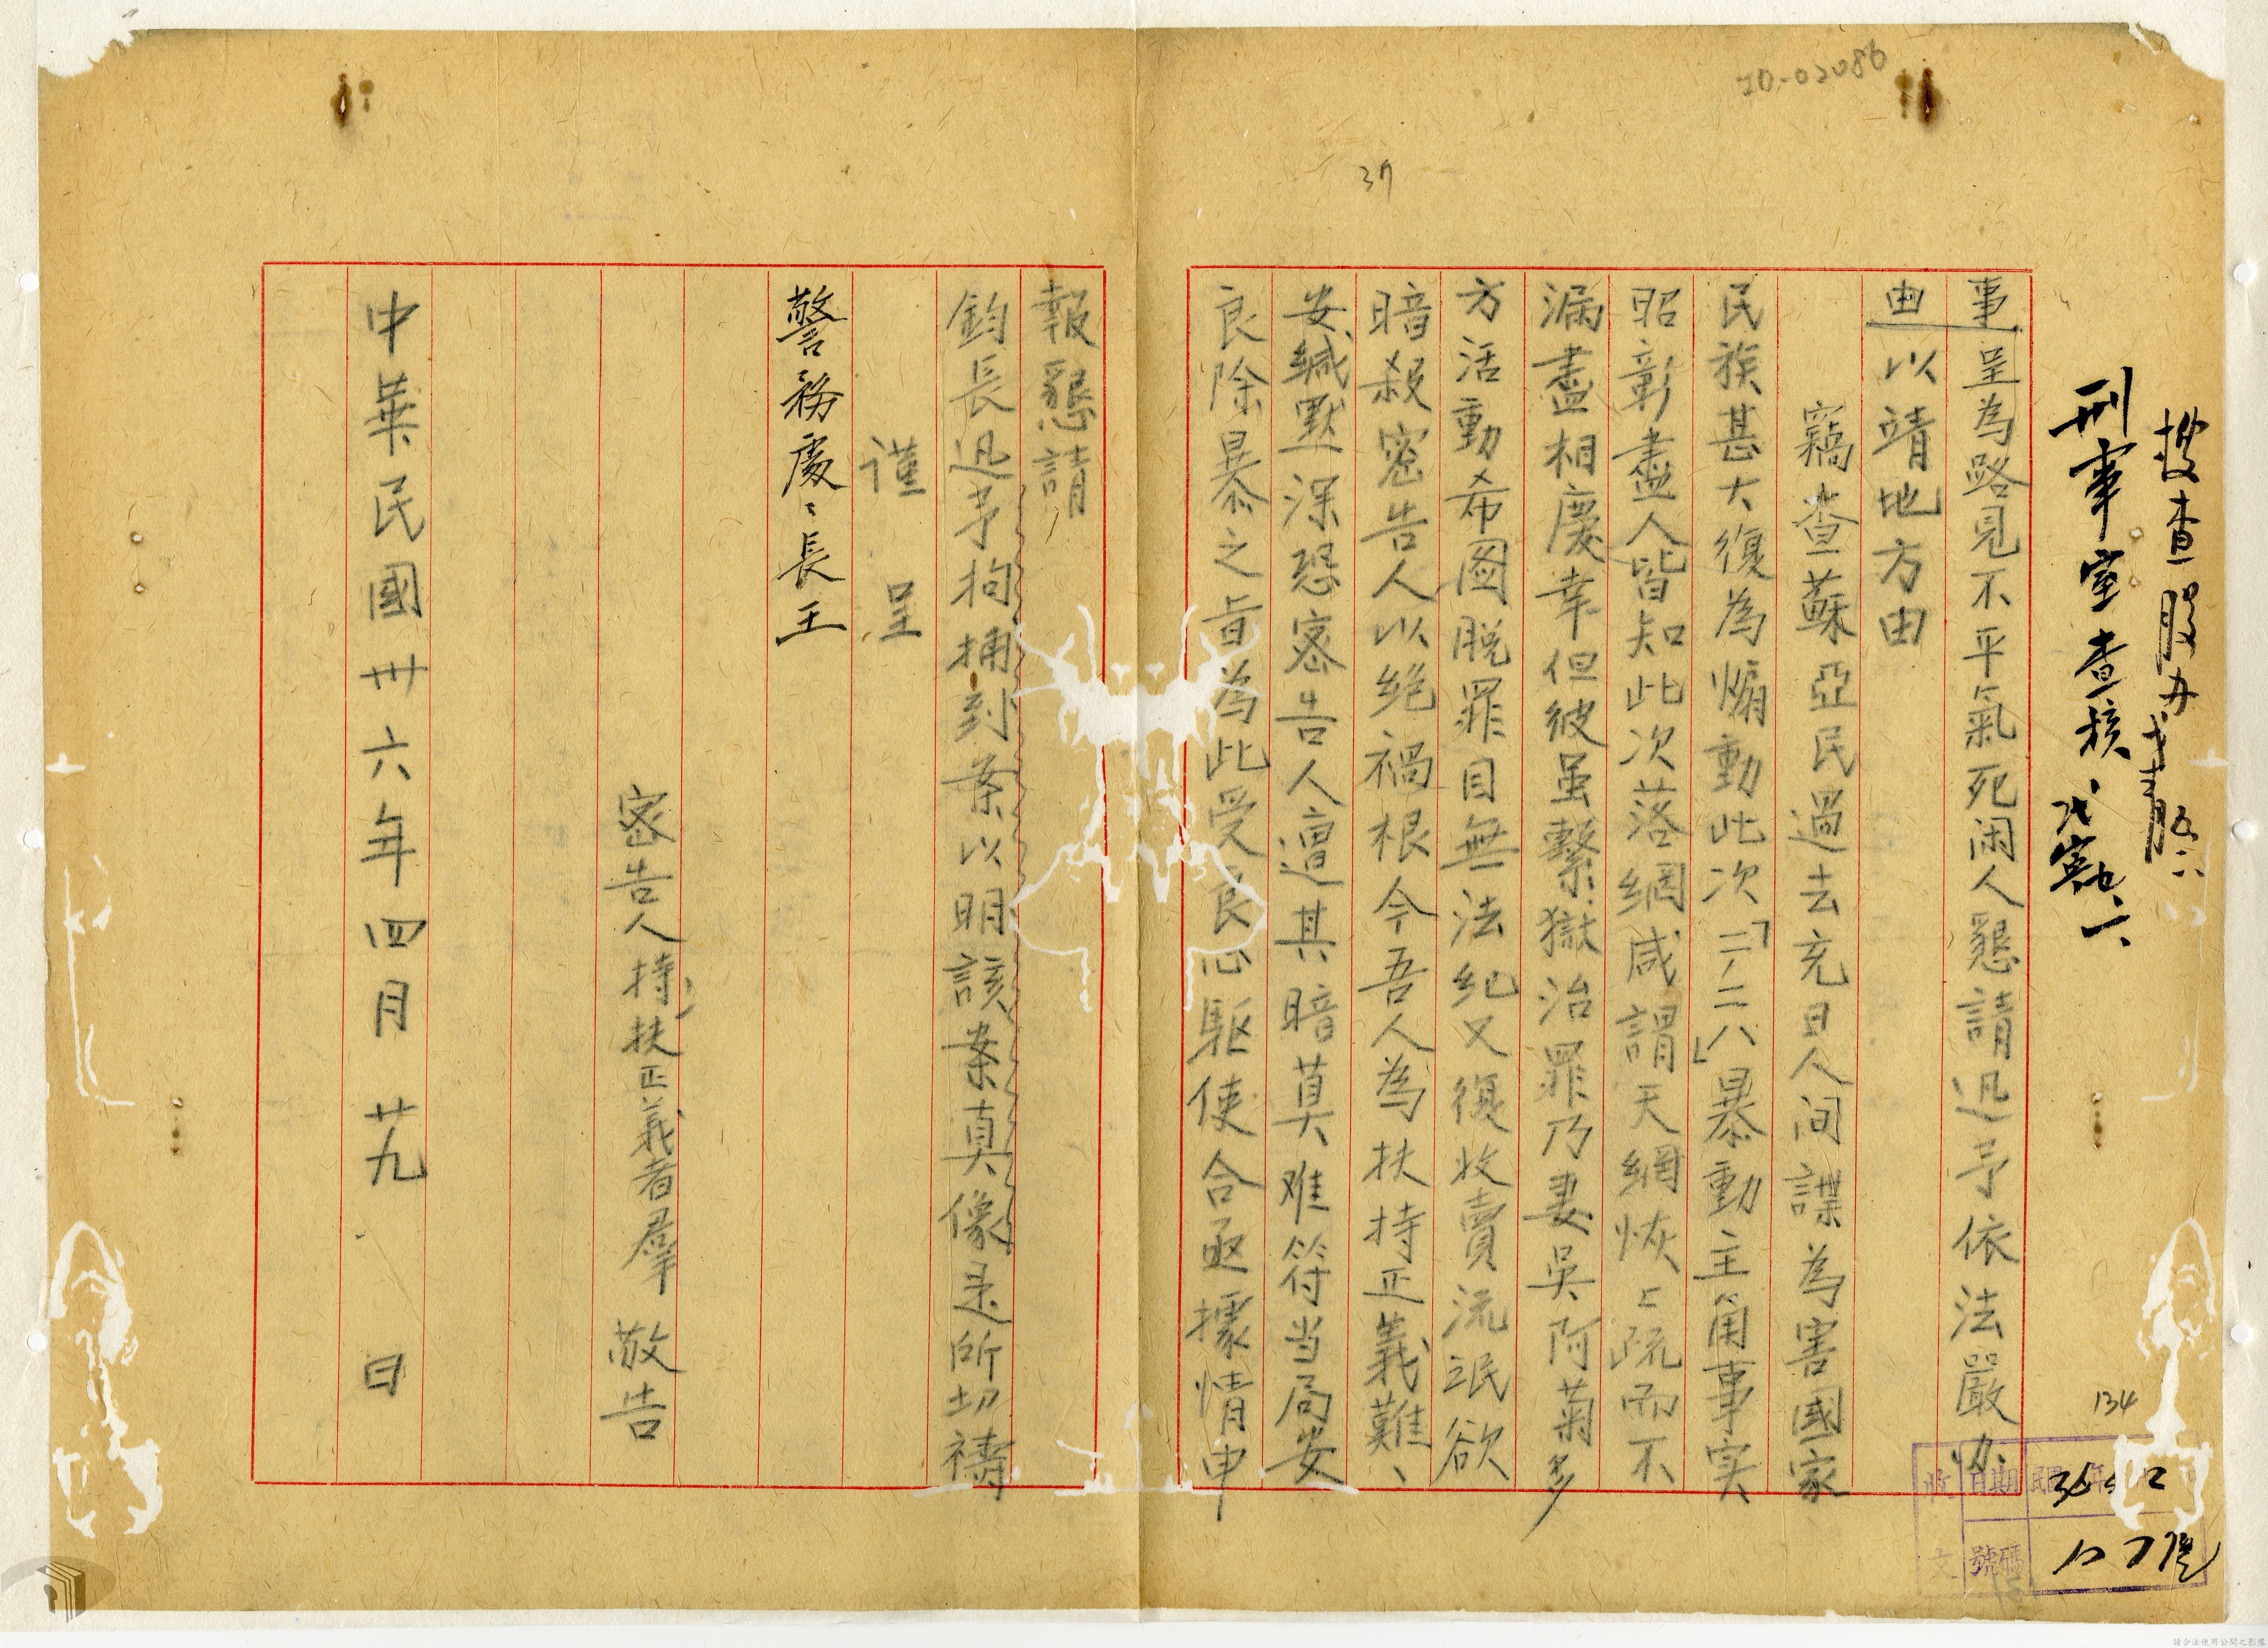 20-02086
37
搜查股办
刑事室查核
事呈為路見不平氣死闲人懇請迅予依法嚴办
由以靖地方由
竊查蘇亞民過去充日人间諜為害國家
民族甚大復為煽動此次「二、二八」暴動主角事实
昭彰盡人皆知此次落網咸謂天網恢〻疏而不
漏盡相慶幸但彼虽繫獄治罪乃妻吳阿菊多
方活動希图脱罪目無法纪又復收賣流氓欲
暗殺密告人以绝禍根今吾人為扶持正義難、
安、緘默深恐密告人遭其暗莫难符当局安
良除暴之旨為此受良心駆使合亟據情申
報懇請
鈞長迅予拘捕到案以明該案真像是所切禱
謹呈
警務處〻長王
密告人持扶正義者羣 敬告
中華民國卅六年四月廿九日
134
收文 日期 民國 年
號碼